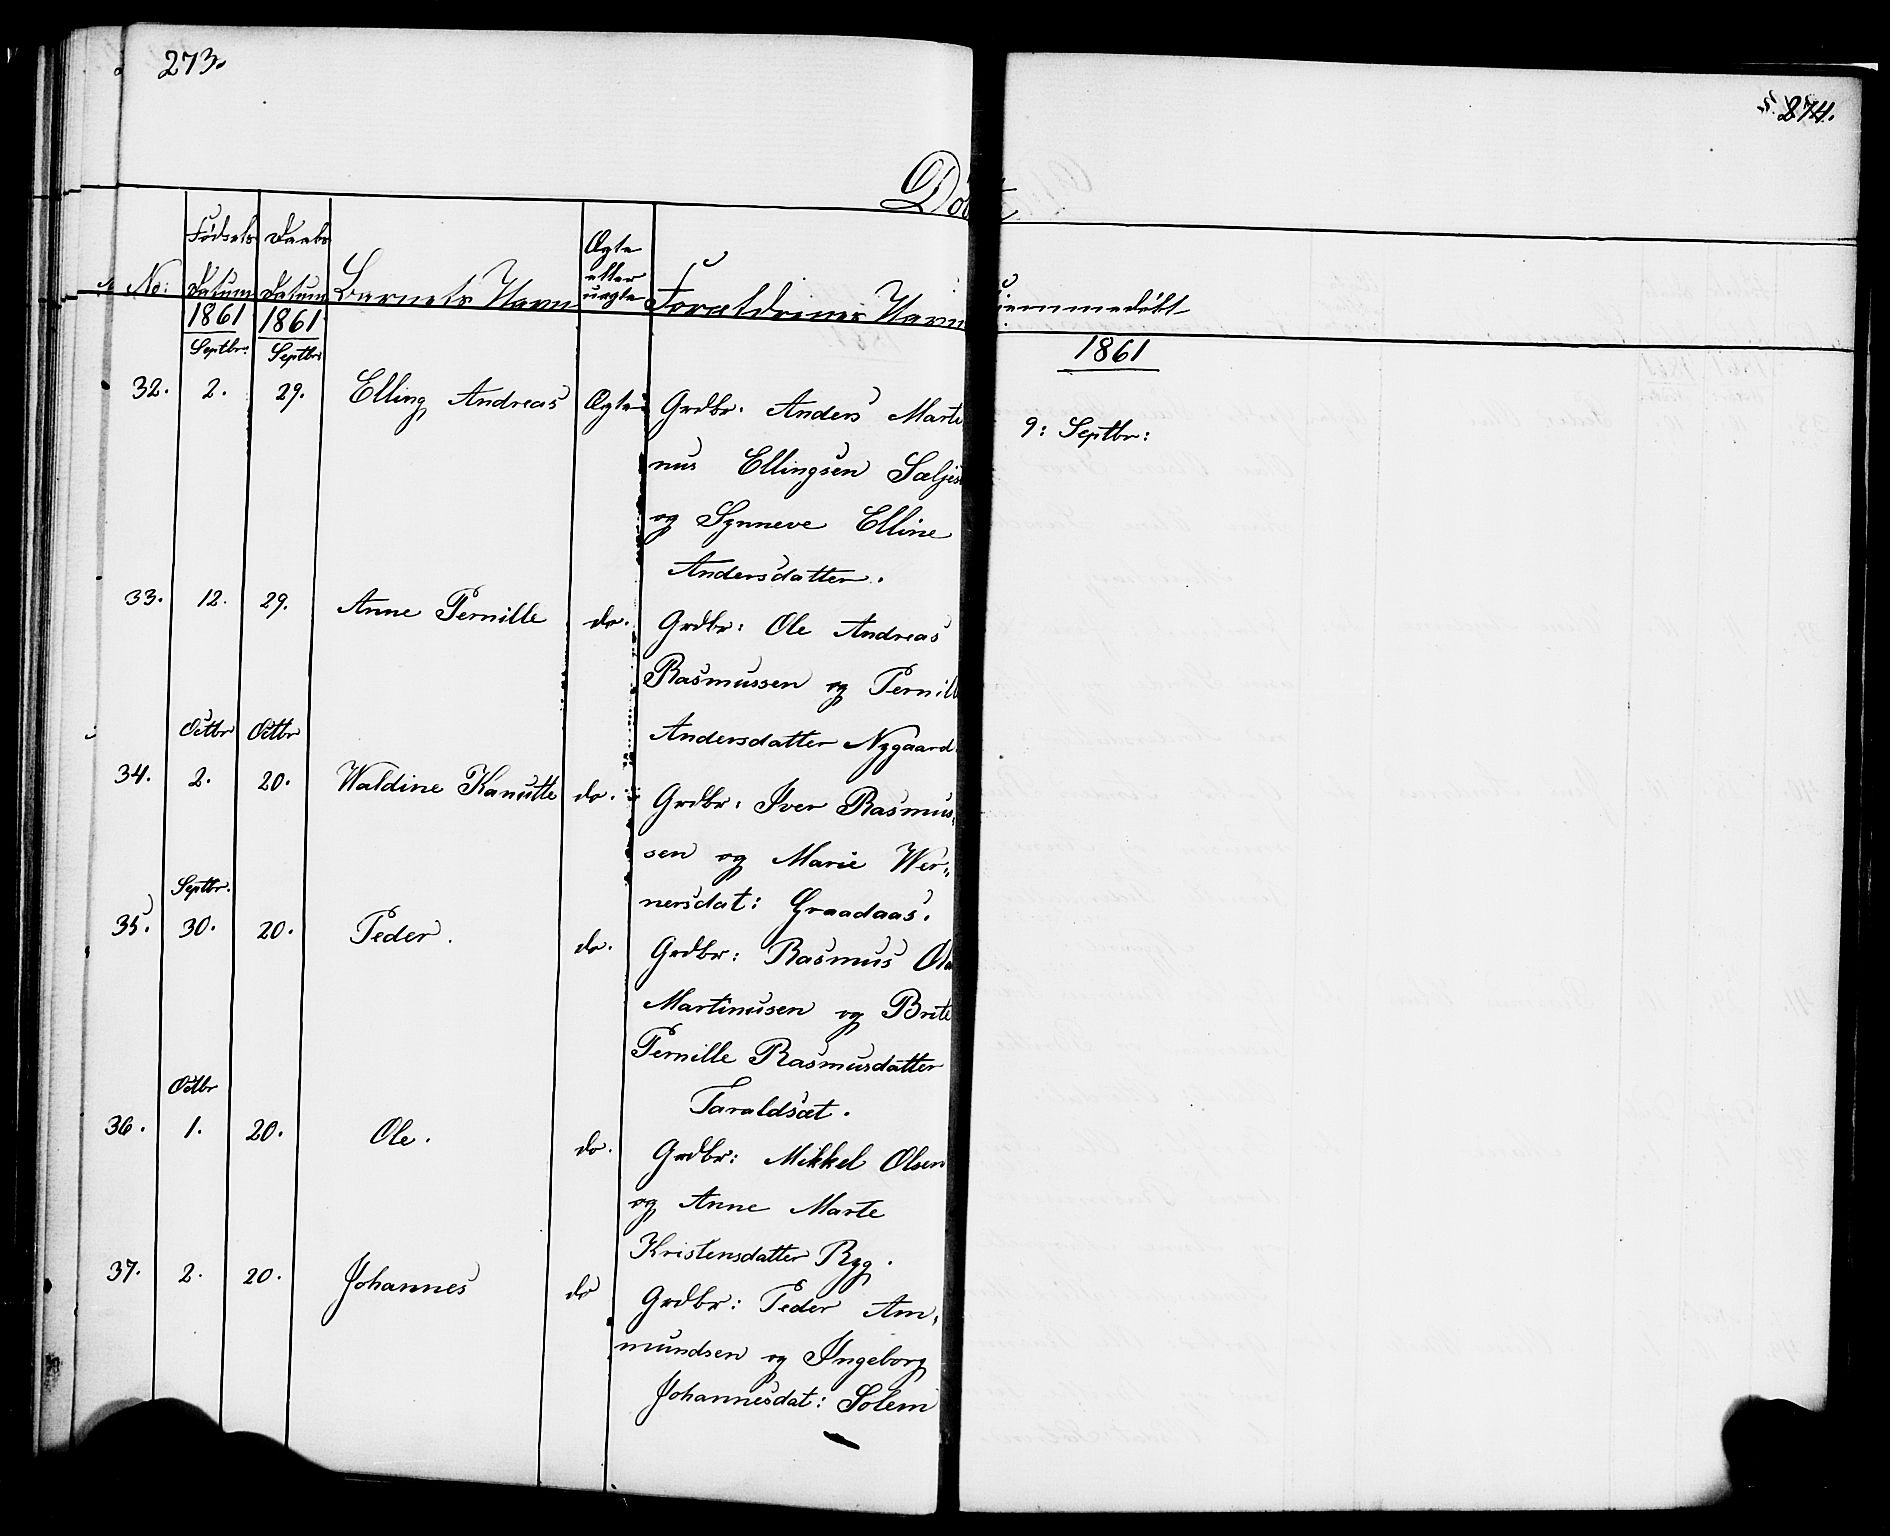 273.
274.
Døbt
No:
Fødsels
Datum
Daabs
Datum
Barnets Navn
Ægte
eller
uægte
Forældrenes Navn
Hjemmedøbt
1861
1861
1861
Septbr:
Septbr:
32. 2. 29. Elling Andreas Ægte Grdbr. Anders Marti
nus Ellingsen Sæljes
og Synneve Elline
Andersdatter.
9: Septbr:
33. 12. 29. Anne Pernille do. Grdbr: Ole Andreas
Rasmussen og Pernille
Andersdatter Nygaard.
Octbr Octbr
34. 2. 20. Waldine Kanutte do. Grdbr: Iver Rasmus„
sen og Marie Wer„
nersdat: Graadaas.
Septbr.
35. 30. 20. Peder. do. Grdbr: Rasmus Ola
Martinusen og Brite
Pernille Rasmusdatter
Taraldsæt.
Octbr
36. 1. 20. Ole. do. Grdbr: Mikkel Olsen
og Anne Marte
Kristensdatter Ryg.
37. 2. 20. Johannes do Grdbr: Peder Am„
mundsen og Ingeborg
Johannesdat: Solem